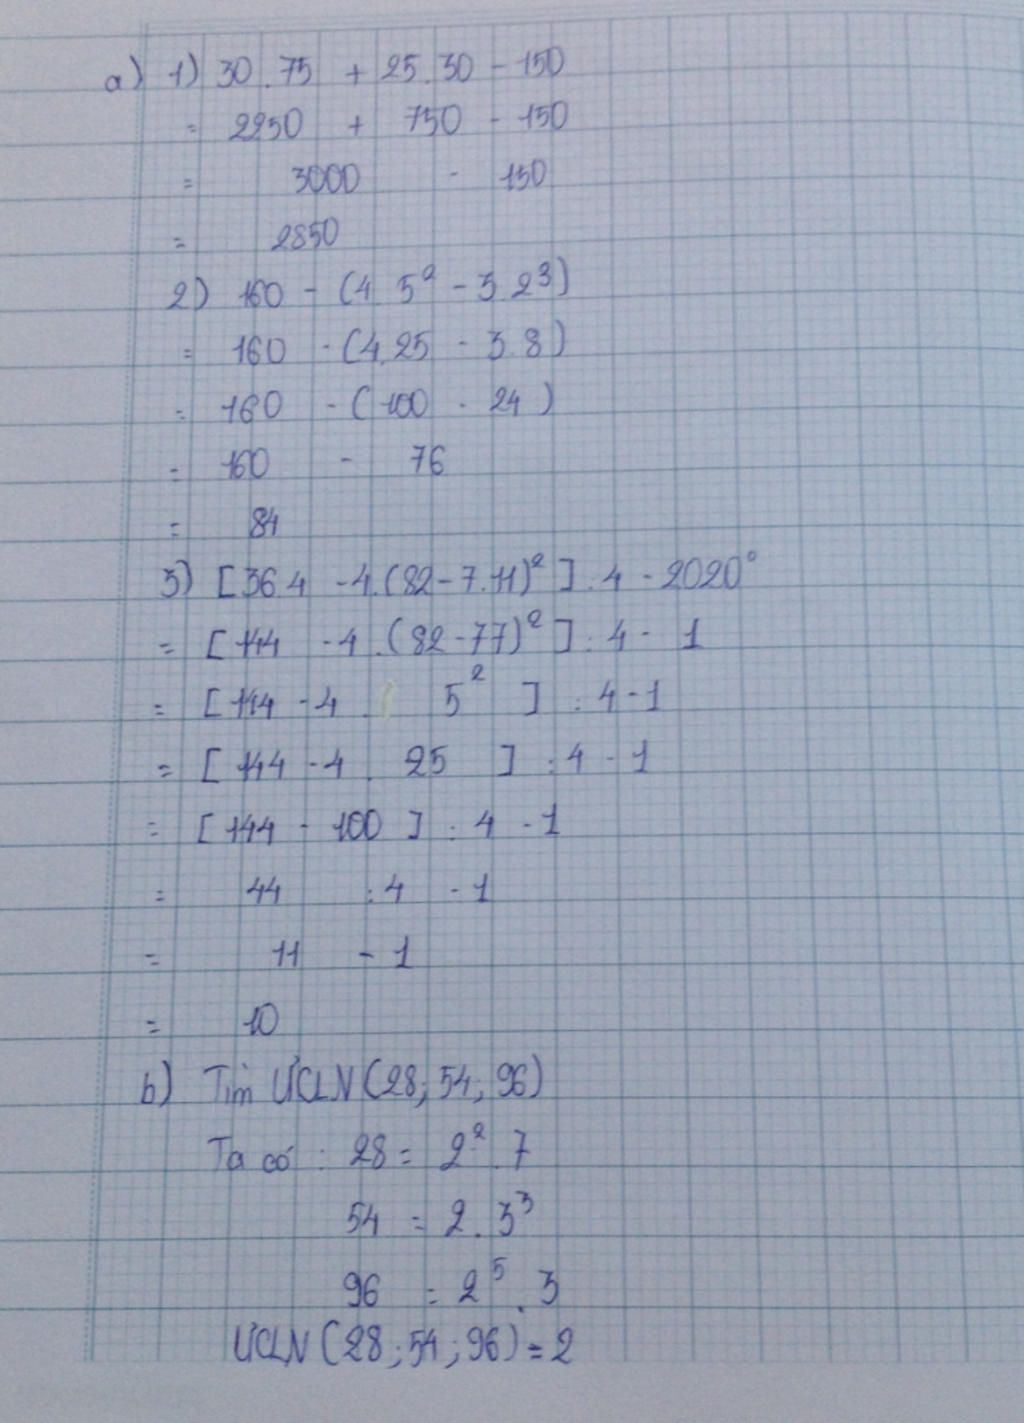 a) 1) 30.75 + 25.30 - 150
= 2250 + 750 - 150
= 3000 - 150
= 2850
2) 160 - (4.5² - 3.2³)
= 160 - (4.25 - 3.8)
= 160 - (100 - 24)
= 160 - 76
= 84
3) [36.4 - 4.(82-7.11)²] : 4 - 2020⁰
= [144 - 4.(82-77)²] : 4 - 1
= [144 - 4 . 5²] : 4 - 1
= [144 - 4 . 25] : 4 - 1
= [144 - 100] : 4 - 1
= 44 : 4 - 1
= 11 - 1
= 10
b) Tìm ƯCLN(28; 54; 96)
Ta có : 28 = 2².7
54 = 2.3³
96 = 2⁵.3
ƯCLN(28; 54; 96) = 2